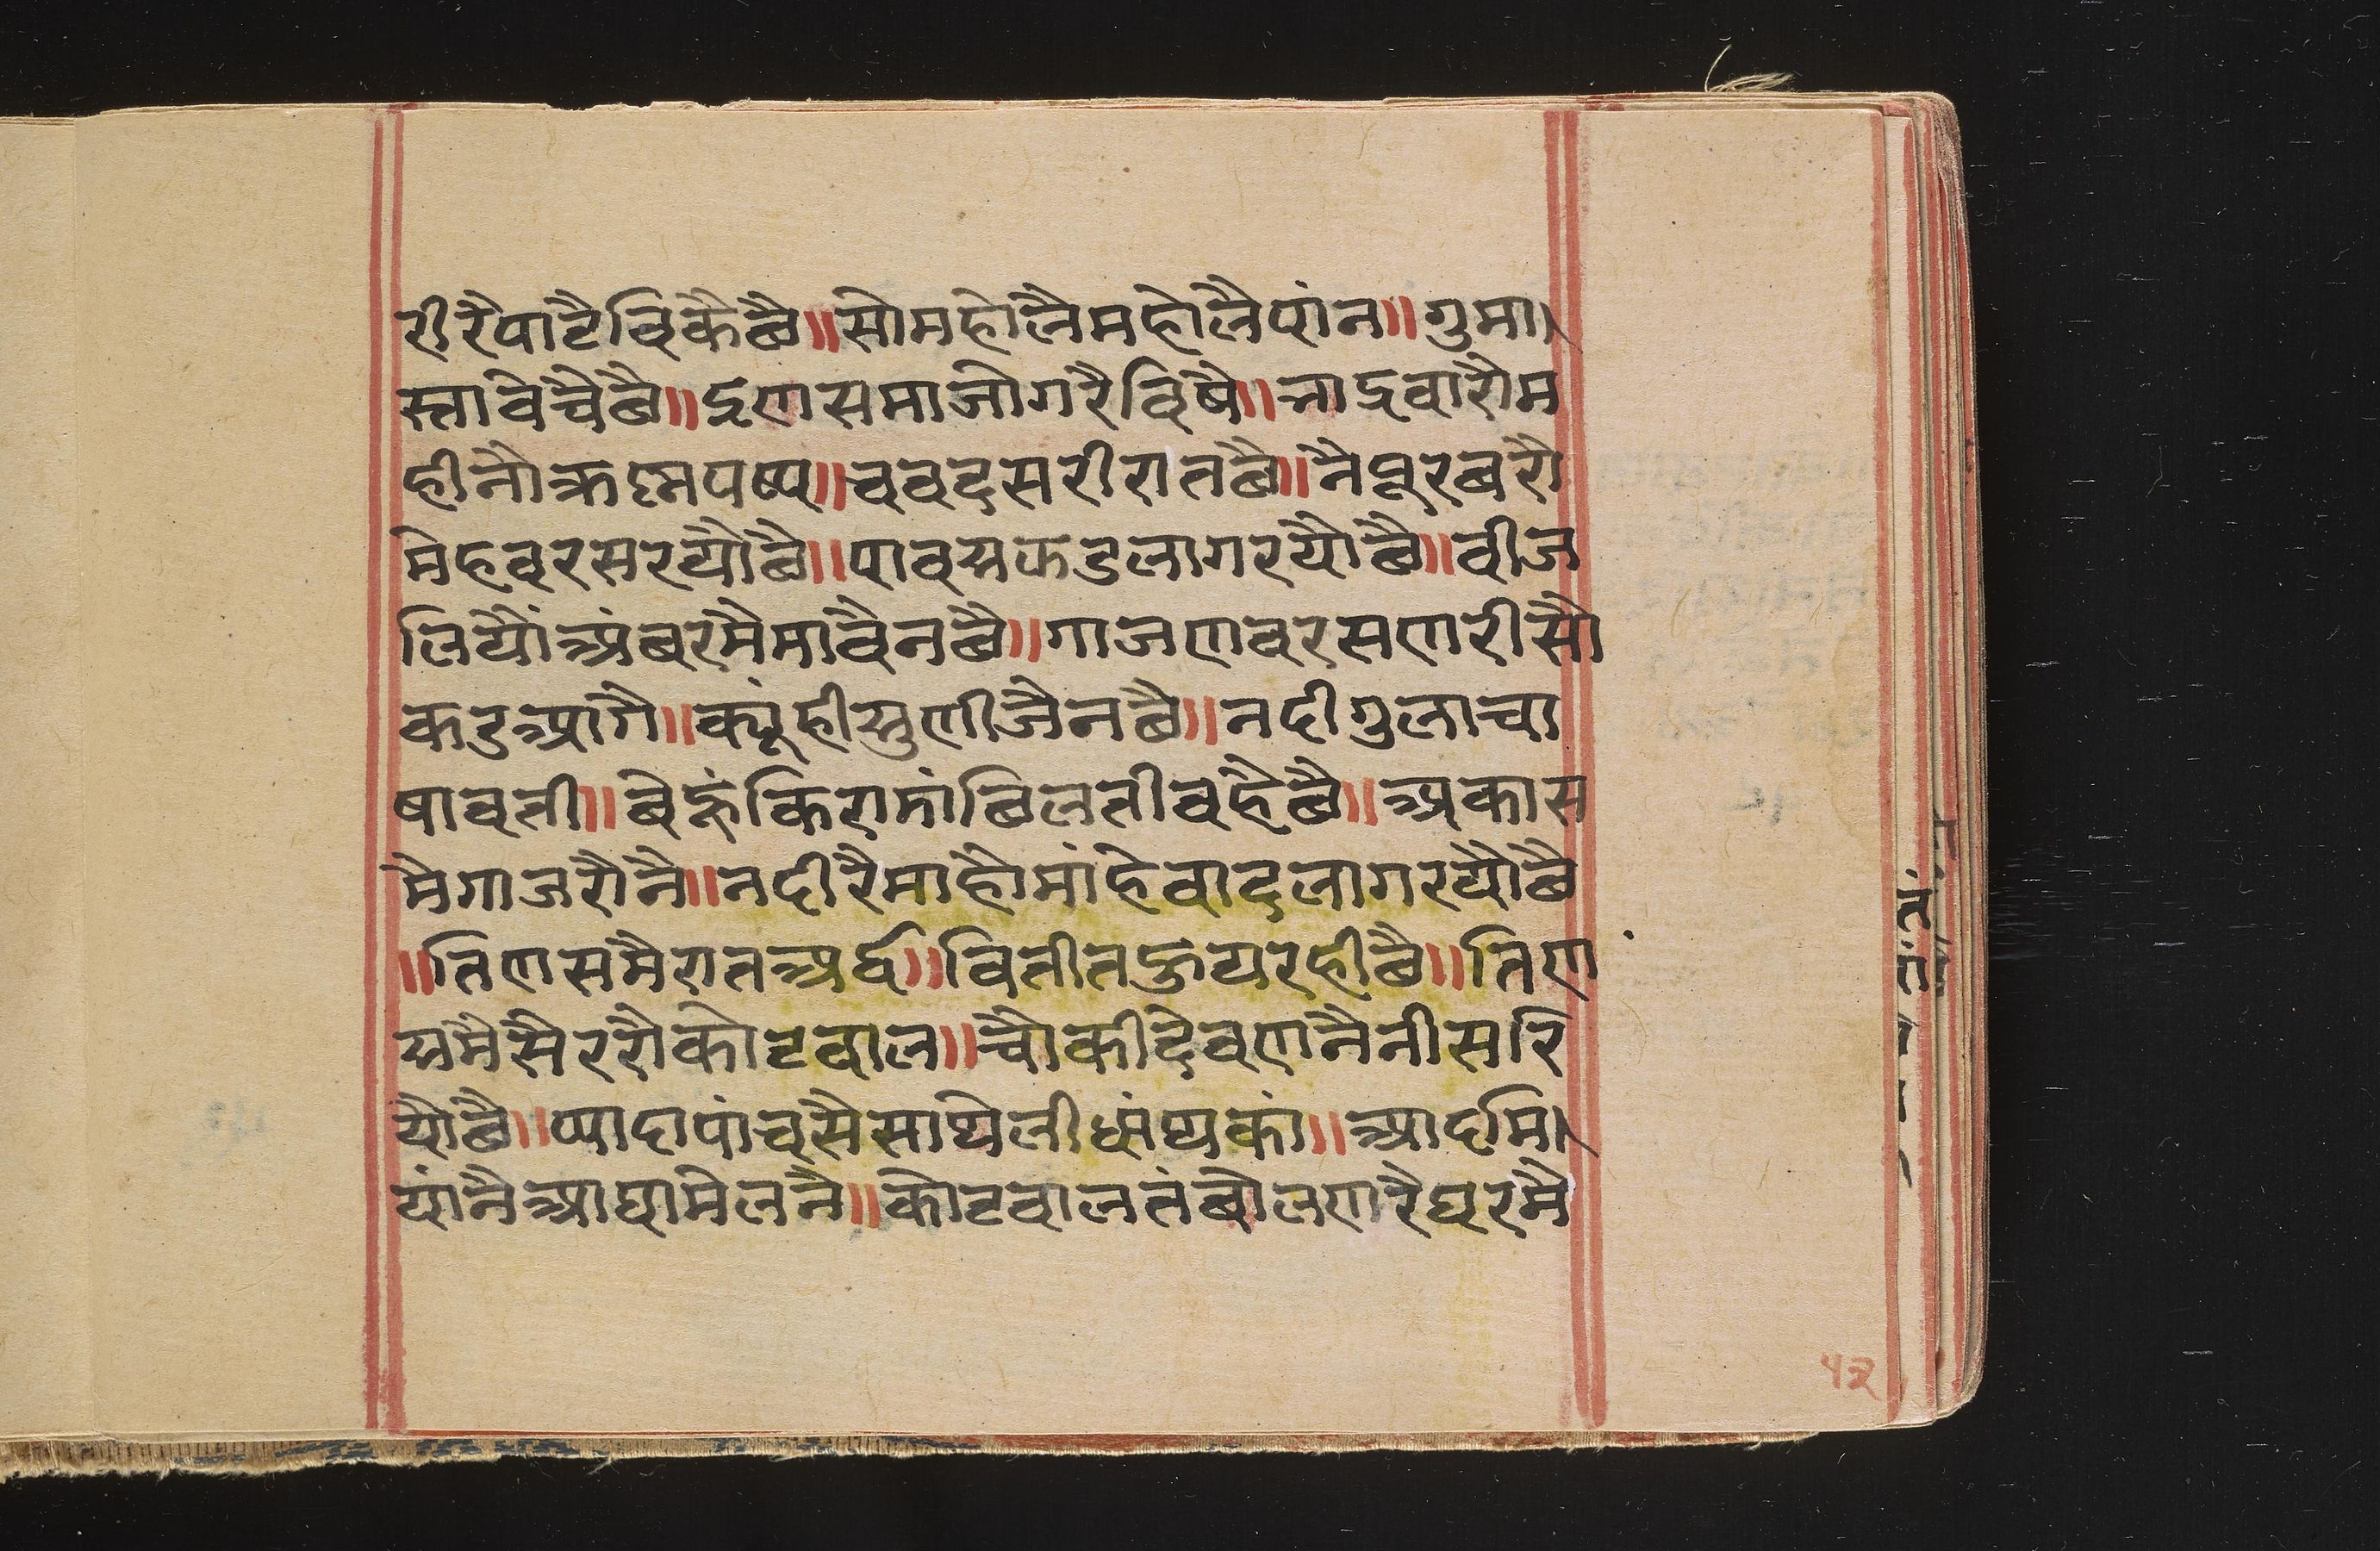 री रै पाटै बिकै छै ॥ सो महोलै महोलै पांन ॥ गुमा
स्तावेचै छै ॥ इण समाजोग रै विषै ॥ भाद्रवा रौ म
हीनौ क्रष्ण पष्य ॥ चवदस री रात छै ॥ नै धूरब रौ
मेह वरस रयौ छै ॥ पावस कड लाग रयौ छै ॥ वीज
लियौं अंबर मै मावै न छै ॥ गाजण वरसण री सौ
क ड आगै ॥ क्यूं ही सुणीजै न छै ॥ नदी गुलाचा
षावती ॥ बेहूं किरामां बिलती वहै छै ॥ अकास
मै गाज रौ नै ॥ नदी रै माहौ मांहे वाद लाग रयौ छै
॥ तिण समै रात अर्द्ध ॥ वितीत हुय रही छै ॥ तिण
समै सैर रौ कोटवाल ॥ चौकी देवण नै नीसरि
यौ छै ॥ प्यादा पांचसै साथे लीधां थकां ॥ आदमि
यांनै आघा मेल नै ॥ कोटवाल तंबोलण रै घर मै
५२